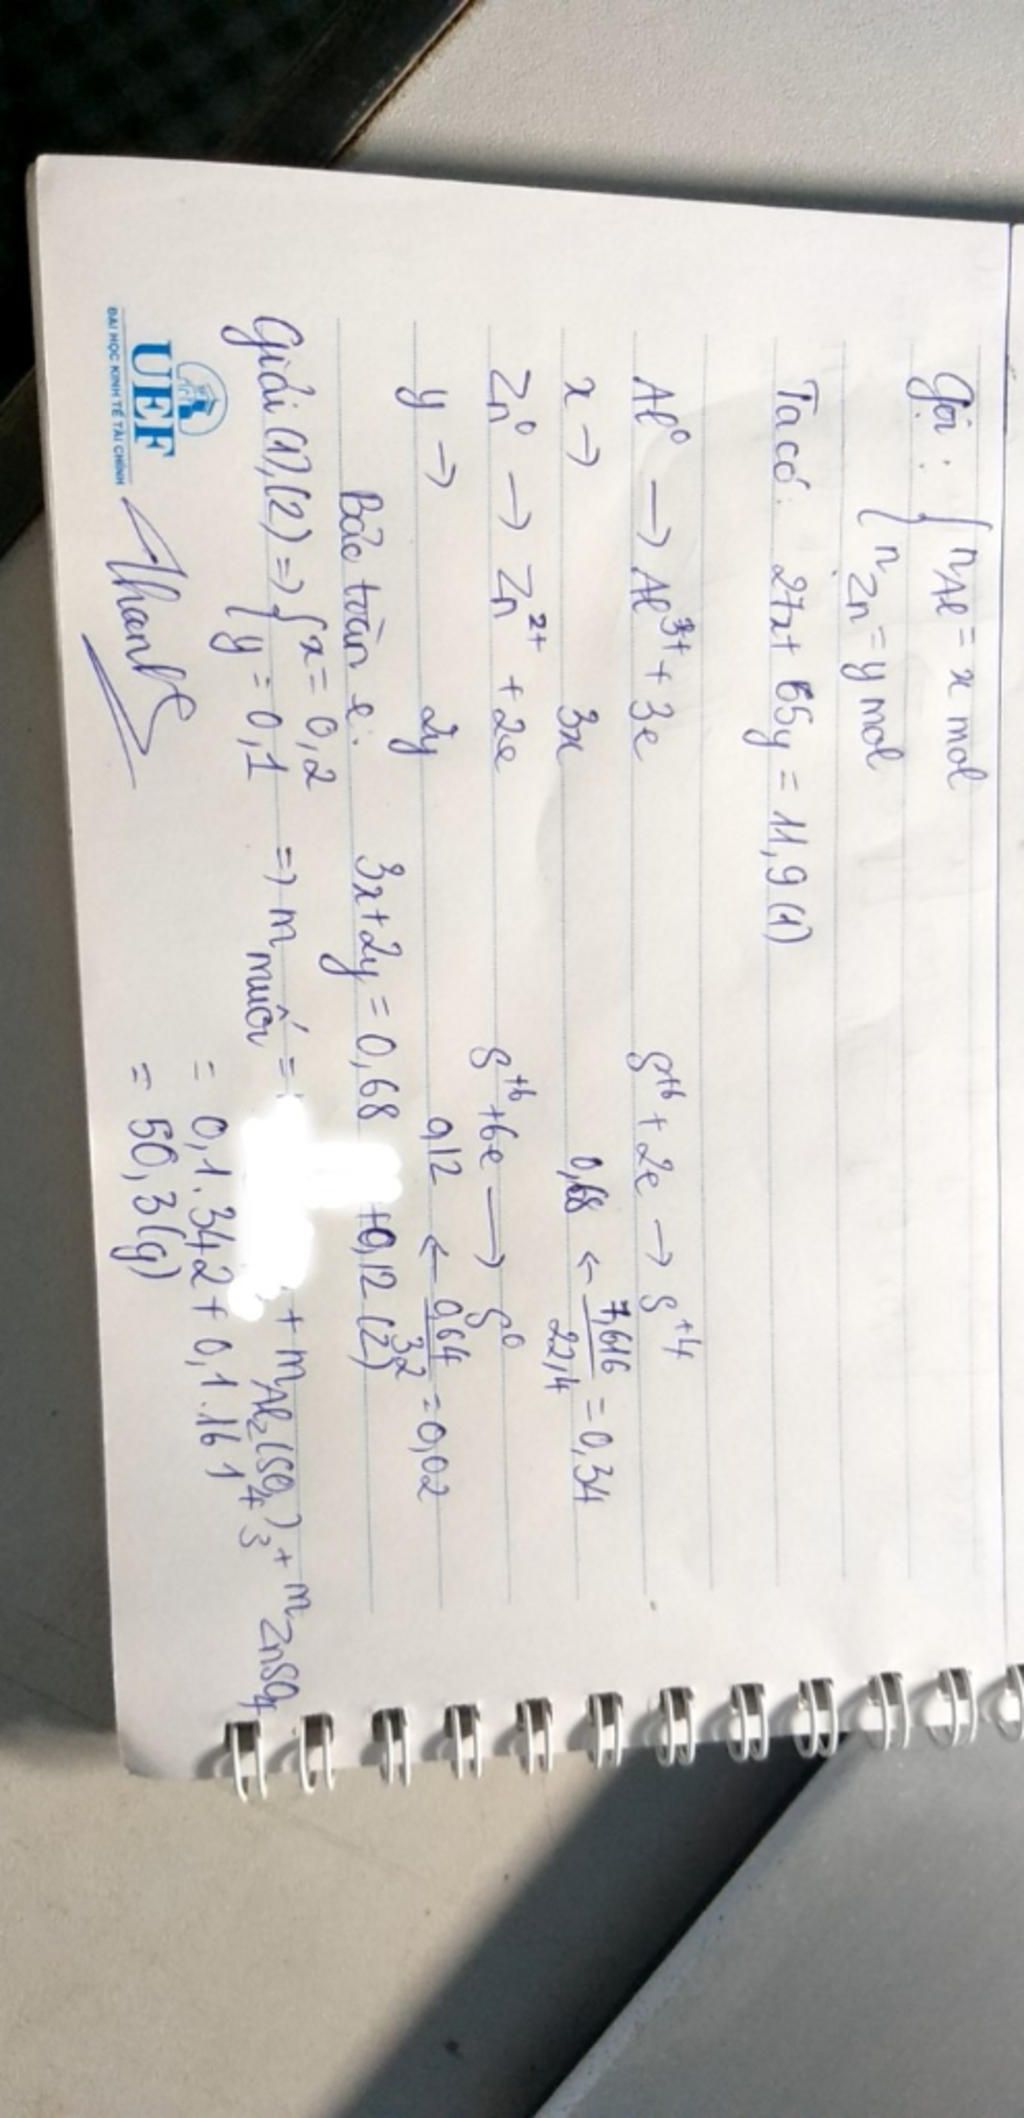 Gọi : { nAl = x mol
{ nZn = y mol
Ta có: 27x + 65y = 11,9 (1)
Al⁰ → Al³⁺ + 3e S⁺⁶ + 2e → S⁺⁴
x → 3x 0,68 ← 7,616/22,4 = 0,34
Zn⁰ → Zn²⁺ + 2e S⁺⁶ + 6e → S⁰
y → 2y 0,12 ← 0,64/32 = 0,02
Bảo toàn e: 3x + 2y = 0,68 + 0,12 (2)
Giải (1), (2) => { x = 0,2
{ y = 0,1 => m muối = + mAl₂(SO₄)₃ + mZnSO₄
= 0,1.342 + 0,1.161
= 50,3 (g)
UEF
ĐẠI HỌC KINH TẾ TÀI CHÍNH
Thanh